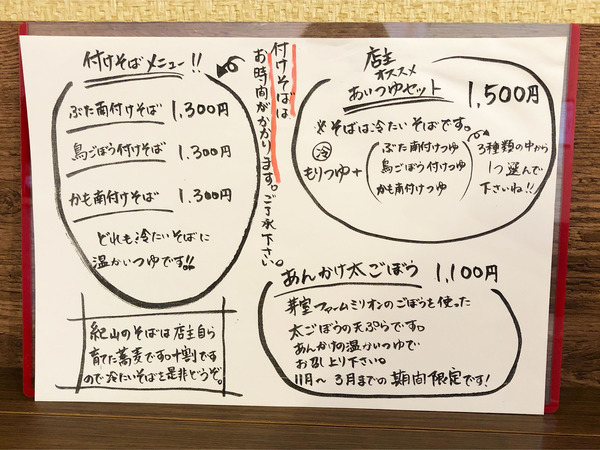 付けそばメニュー!!
ぶた南付けそば 1,300円
鳥ごぼう付けそば 1,300円
かも南付けそば 1,300円
どれも冷たいそばに
温かいつゆです!!
付けそばは
お時間がかかります。ご了承下さい。
店主
オススメ
あいつゆセット 1,500円
※そばは冷たいそばです。
冷
もりつゆ+
ぶた南付けつゆ
鳥ごぼう付けつゆ
かも南付けつゆ
3種類の中から
1つ選んで
下さいね!!
あんかけ太ごぼう 1,100円
芽室ファームミリオンのごぼうを使った
太ごぼうの天ぷらです。
あんかけの温かいつゆで
お召し上り下さい。
11月〜3月までの期間限定です!
紀山のそばは店主自ら
育てた蕎麦です。十割です
ので冷たいそばを是非どうぞ。